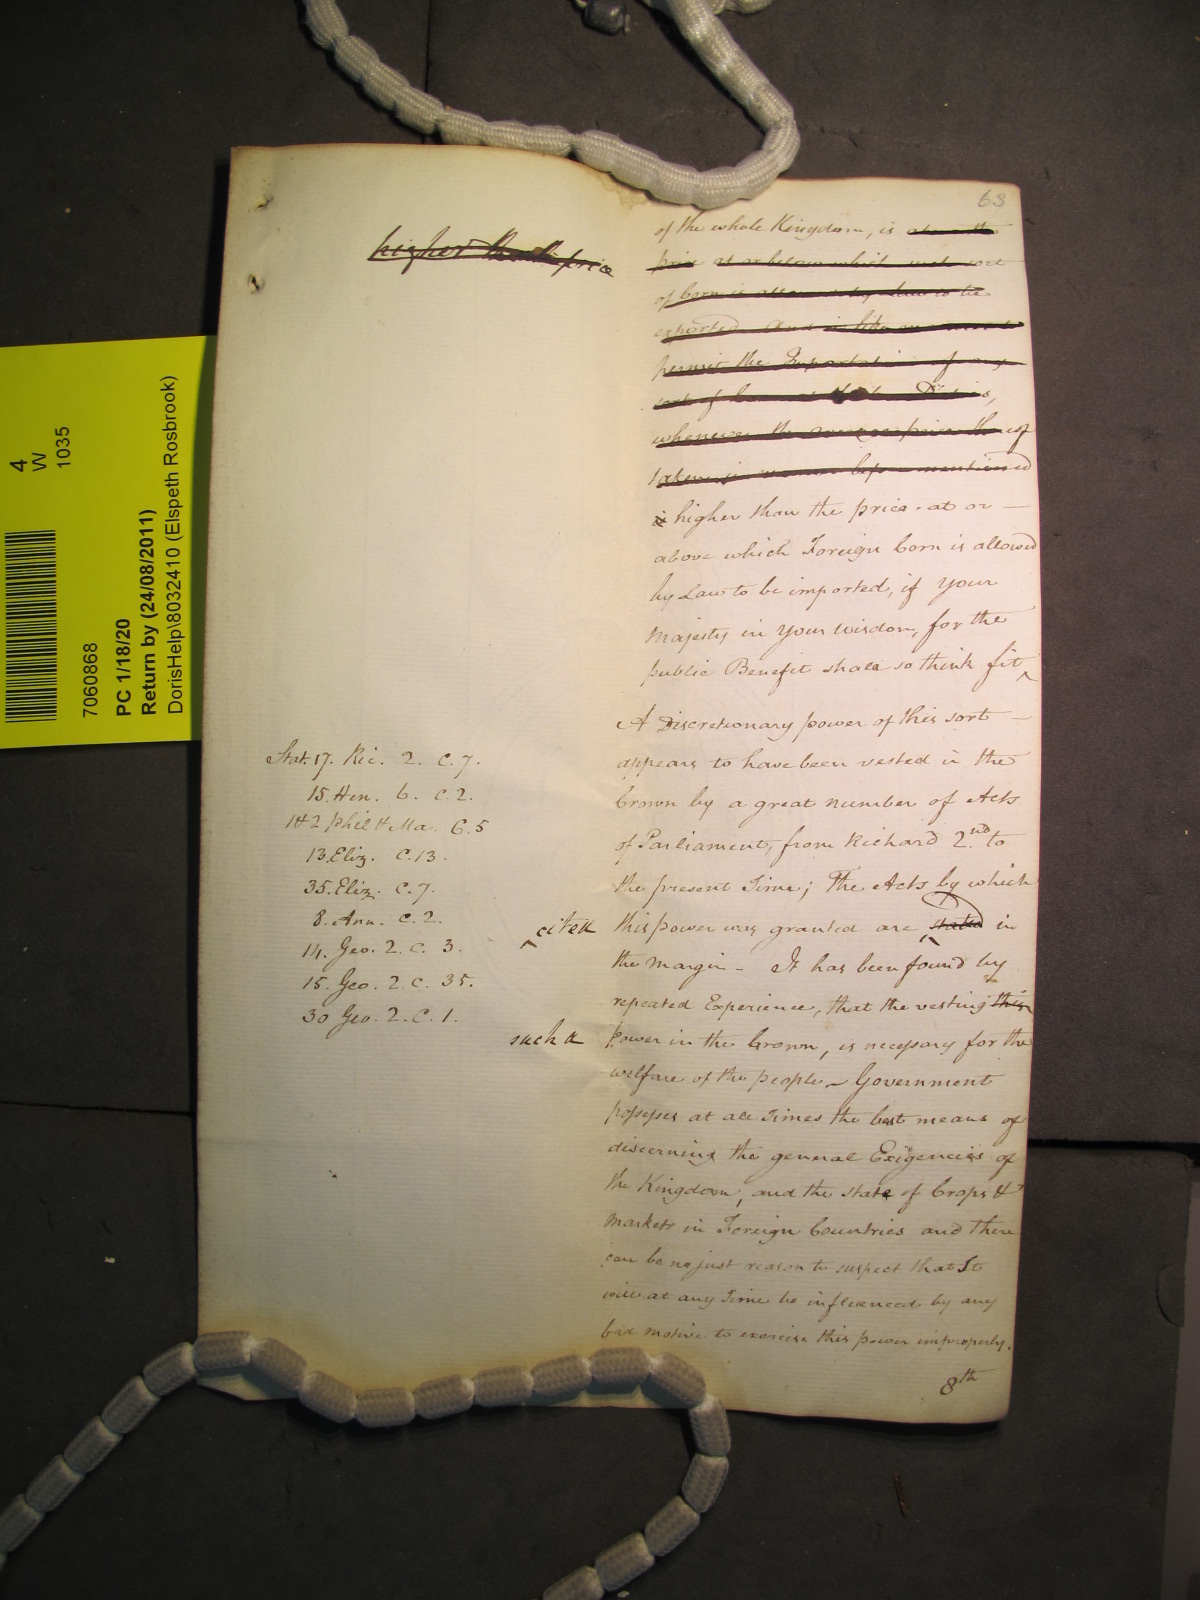 63
of the whole Kingdom, is above the
price at or below which such sort
of Corn is allowed by Law to be
exported And in like manner to
permit the Importation of any
sort of Corn at Duties,
whenever the average price thereof
taken in manner before mentioned
is higher than the price at or —
above which Foreign Corn is allowed
by Law to be imported, if Your
Majesty in Your Wisdom, for the
public Benefit shall so think fit
A Discretionary power of this sort —
appears to have been vested in the
Crown by a great number of Acts
of Parliament, from Richard 2.nd to
the present Time; The Acts by which
this power was granted are stated in
the Margin – It has been found by
repeated Experience, that the vesting this
power in the Crown, is necessary for the
welfare of the people – Government
possesses at all Times the best means of
discerning the general Exigencies of
the Kingdom, and the state of Crops &
Markets in Foreign Countries and there
can be no just reason to suspect that It
will at any Time be influenced by any
bad motive to exercise this power improperly.
8th
higher than the price
Stat. 17. Ric. 2. C. 7.
15. Hen. 6. C. 2.
1 & 2 Phil & Ma. C. 5
13. Eliz. C. 13.
35. Eliz. C. 7.
8. Ann. C. 2.
14. Geo. 2. C. 3.
15. Geo. 2. C. 35.
30 Geo. 2. C. 1.
cited
such a
4
W
1035
7060868
PC 1/18/20
Return by (24/08/2011)
DorisHelp\8032410 (Elspeth Rosbrook)